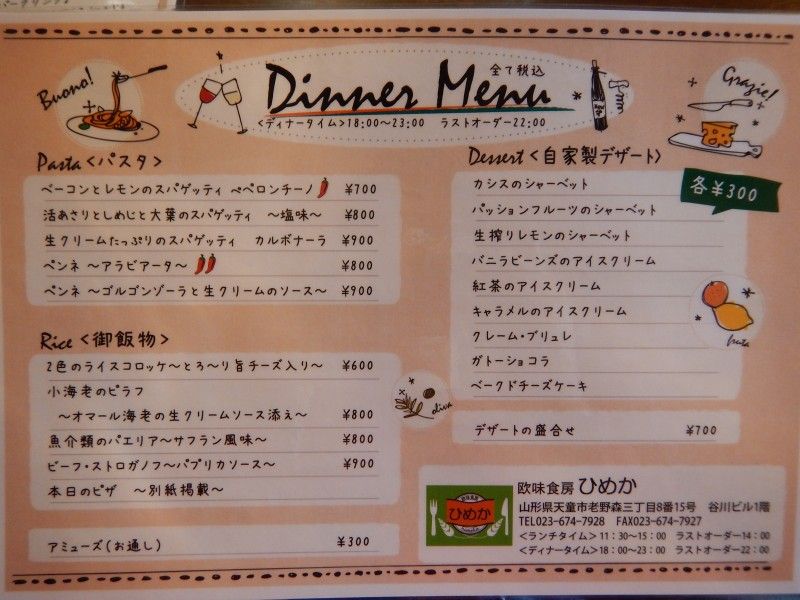 Buono!
全て税込
Dinner Menu
<ディナータイム>18:00～23:00 ラストオーダー22:00
Grazie!
Pasta <パスタ>
ベーコンとレモンのスパゲッティ ペペロンチーノ ¥700
活あさりとしめじと大葉のスパゲッティ ～塩味～ ¥800
生クリームたっぷりのスパゲッティ カルボナーラ ¥900
ペンネ ～アラビアータ～ ¥800
ペンネ ～ゴルゴンゾーラと生クリームのソース～ ¥900
Rice <御飯物>
2色のライスコロッケ～とろ～り旨チーズ入り～ ¥600
小海老のピラフ
～オマール海老の生クリームソース添え～ ¥800
魚介類のパエリア～サフラン風味～ ¥800
ビーフ・ストロガノフ～パプリカソース～ ¥900
本日のピザ ～別紙掲載～
アミューズ(お通し) ¥300
Dessert <自家製デザート>
各¥300
カシスのシャーベット
パッションフルーツのシャーベット
生搾りレモンのシャーベット
バニラビーンズのアイスクリーム
紅茶のアイスクリーム
キャラメルのアイスクリーム
クレーム・ブリュレ
ガトーショコラ
ベークドチーズケーキ
デザートの盛合せ ¥700
欧味食房 ひめか
ひめか
山形県天童市老野森三丁目8番15号 谷川ビル1階
TEL023-674-7928 FAX023-674-7927
<ランチタイム>11:30～15:00 ラストオーダー14:00
<ディナータイム>18:00～23:00 ラストオーダー22:00